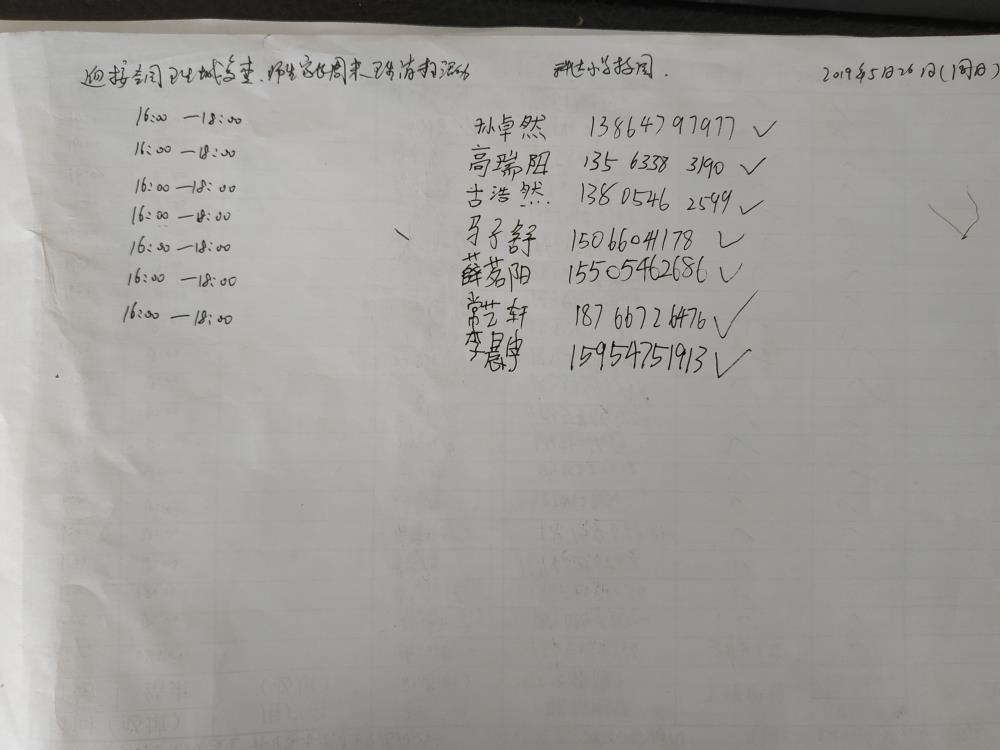 迎接全国卫生城复查、师生家长周末卫生清扫活动 科达小学校园. 2019年5月26日(周日)
16:00 —18:00 孙卓然 13864797977 ✓
16:00 —18:00 高瑞阳 135 6338 3190 ✓
16:00 —18:00 古浩然 1380546 2599 ✓
16:00 —18:00 马子舒 15066041178 ✓
16:00 —18:00 薛茗阳 15505462686 ✓
16:00 —18:00 常芸轩 18766726476 ✓
16:00 —18:00 李晨宇 15954751913 ✓